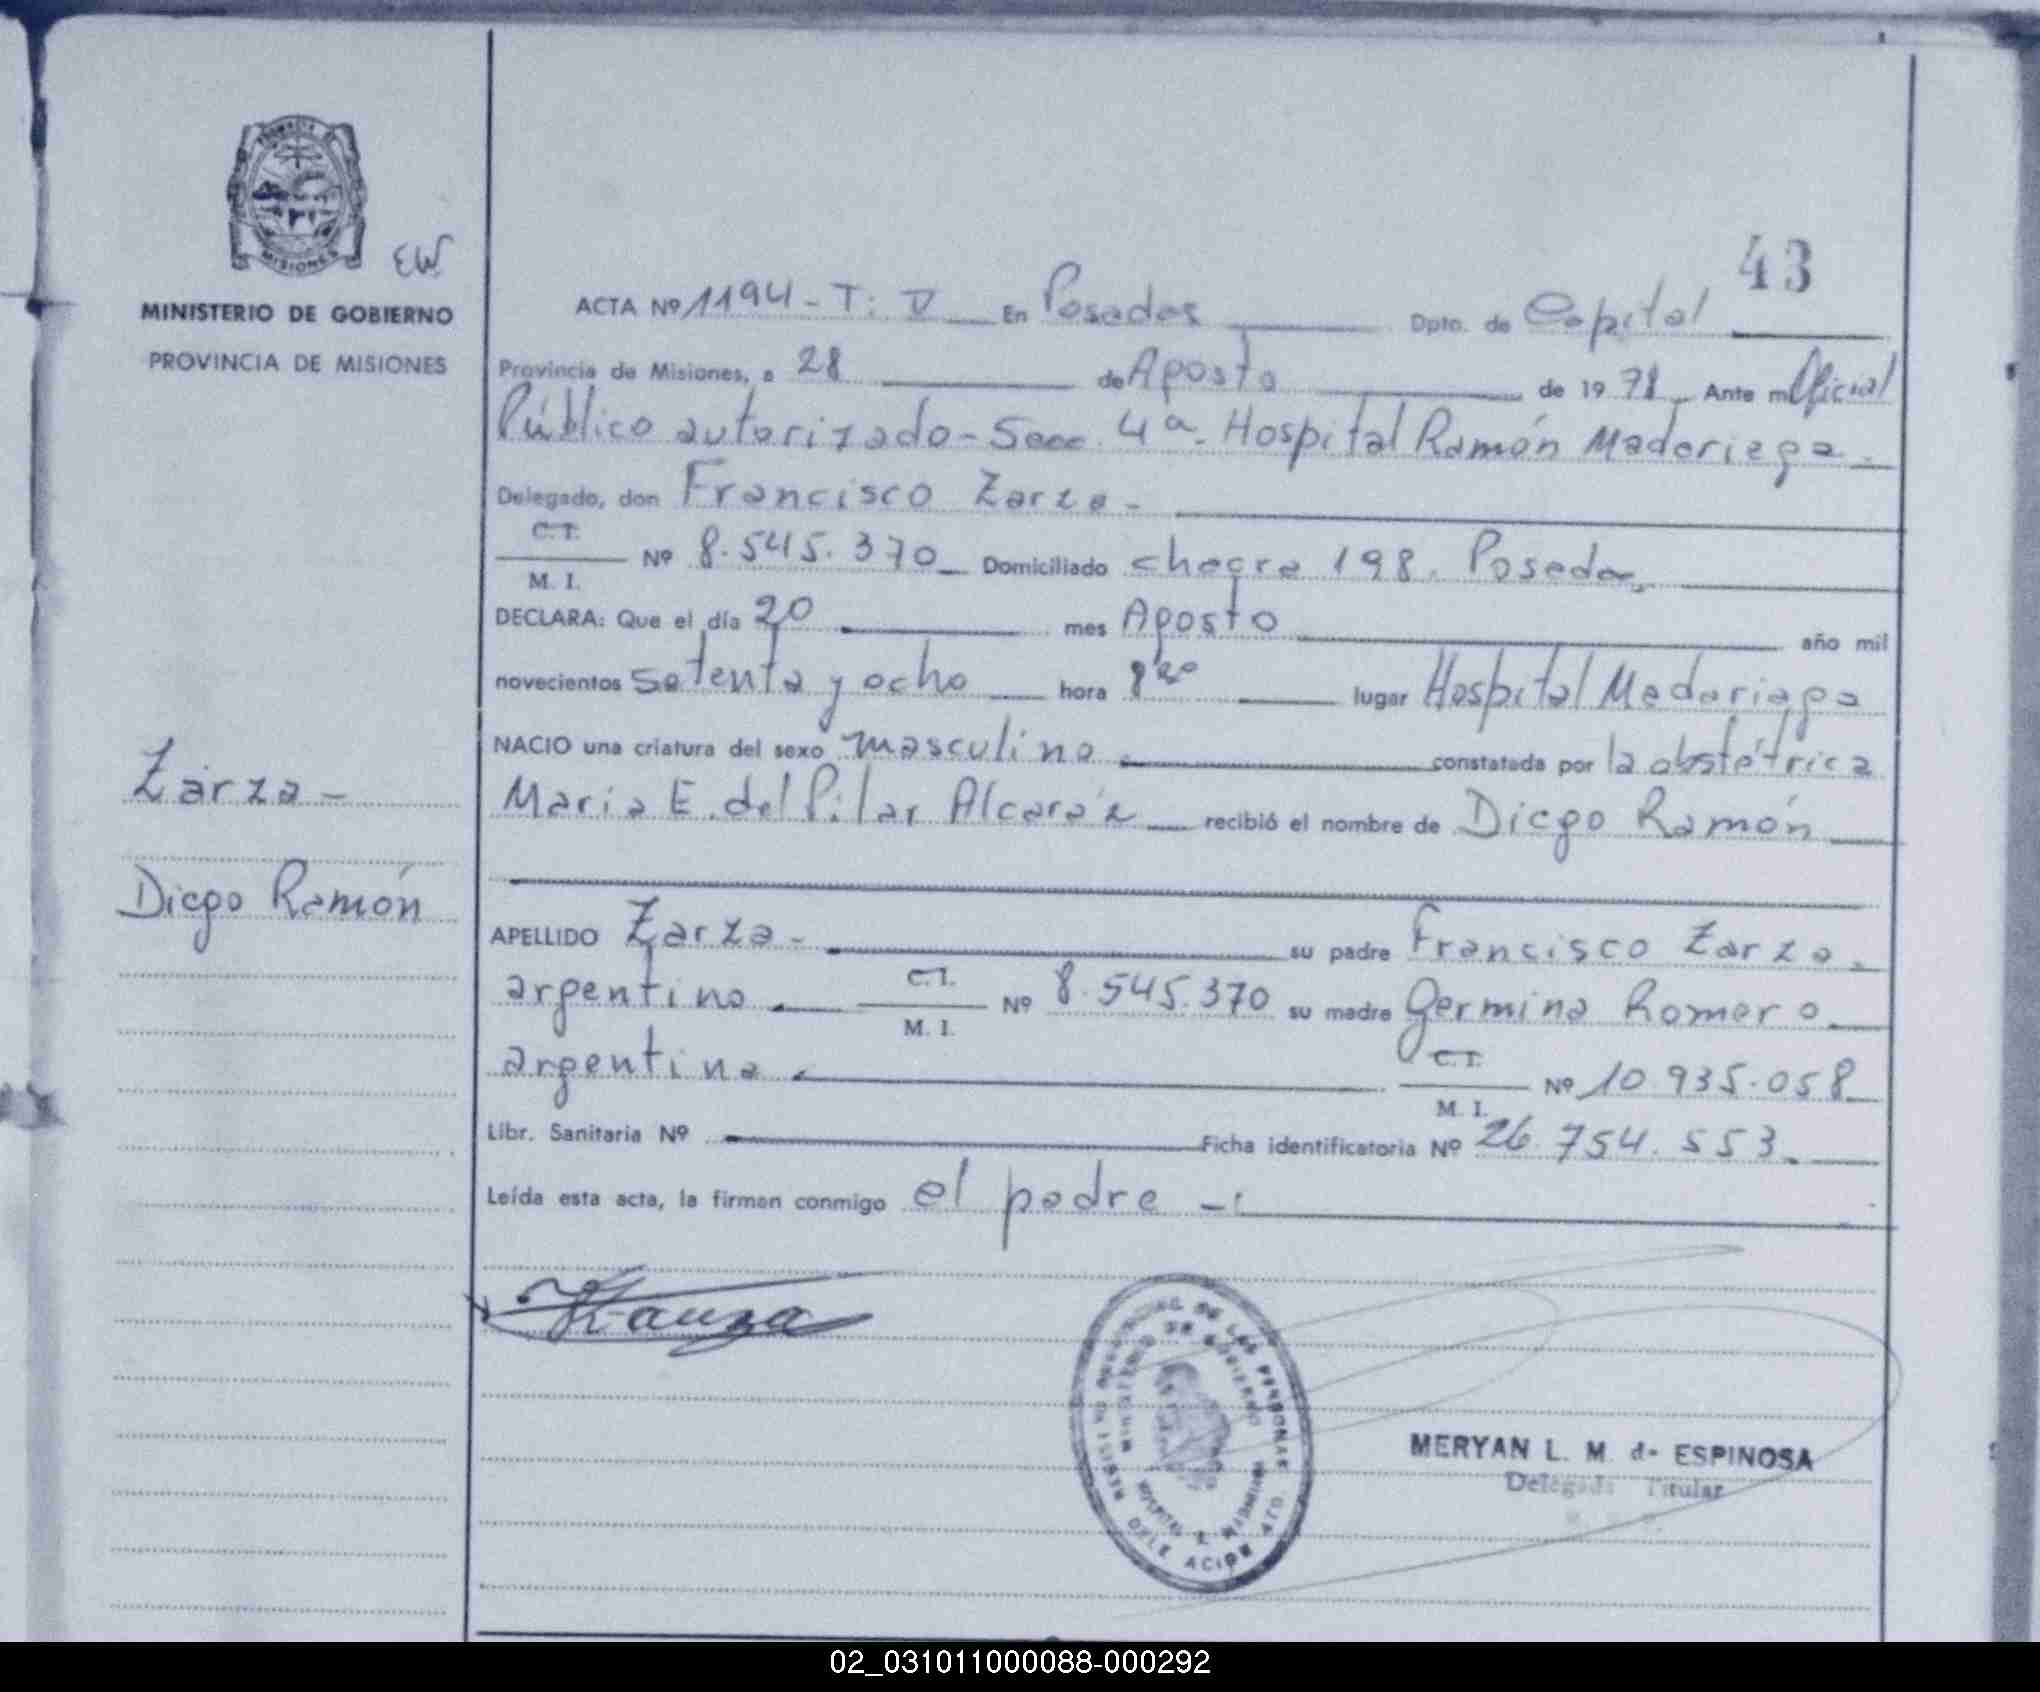 PROVINCIA DE
MISIONES
EW
MINISTERIO DE GOBIERNO
PROVINCIA DE MISIONES
43
ACTA Nº 1194 - T: V En Posadas Dpto. de Capital
Provincia de Misiones, a 28 de Agosto de 1978 Ante mi Oficial
Público autorizado - Secc. 4a. Hospital Ramón Madariaga.
Delegado, don Francisco Zarza -
C.I.
M. I.
Nº 8.545.370 Domiciliado chacra 198. Posadas
DECLARA: Que el día 20 mes Agosto año mil
novecientos setenta y ocho hora 8 30 lugar Hospital Madariaga
NACIO una criatura del sexo masculino. constatada por la obstétrica
Maria E. del Pilar Alcaráz recibió el nombre de Diego Ramón
Zarza -
Diego Ramón
APELLIDO Zarza - su padre Francisco Zarza.
argentino. C.I. M. I. Nº 8.545.370 su madre Germina Romero
argentina. C.I. M. I. Nº 10.935.058
Libr. Sanitaria Nº Ficha identificatoria Nº 26.754.553.
Leída esta acta, la firman conmigo el padre -:
Zarza
MERYAN L. M. de ESPINOSA
Delegada Titular
02_031011000088-000292